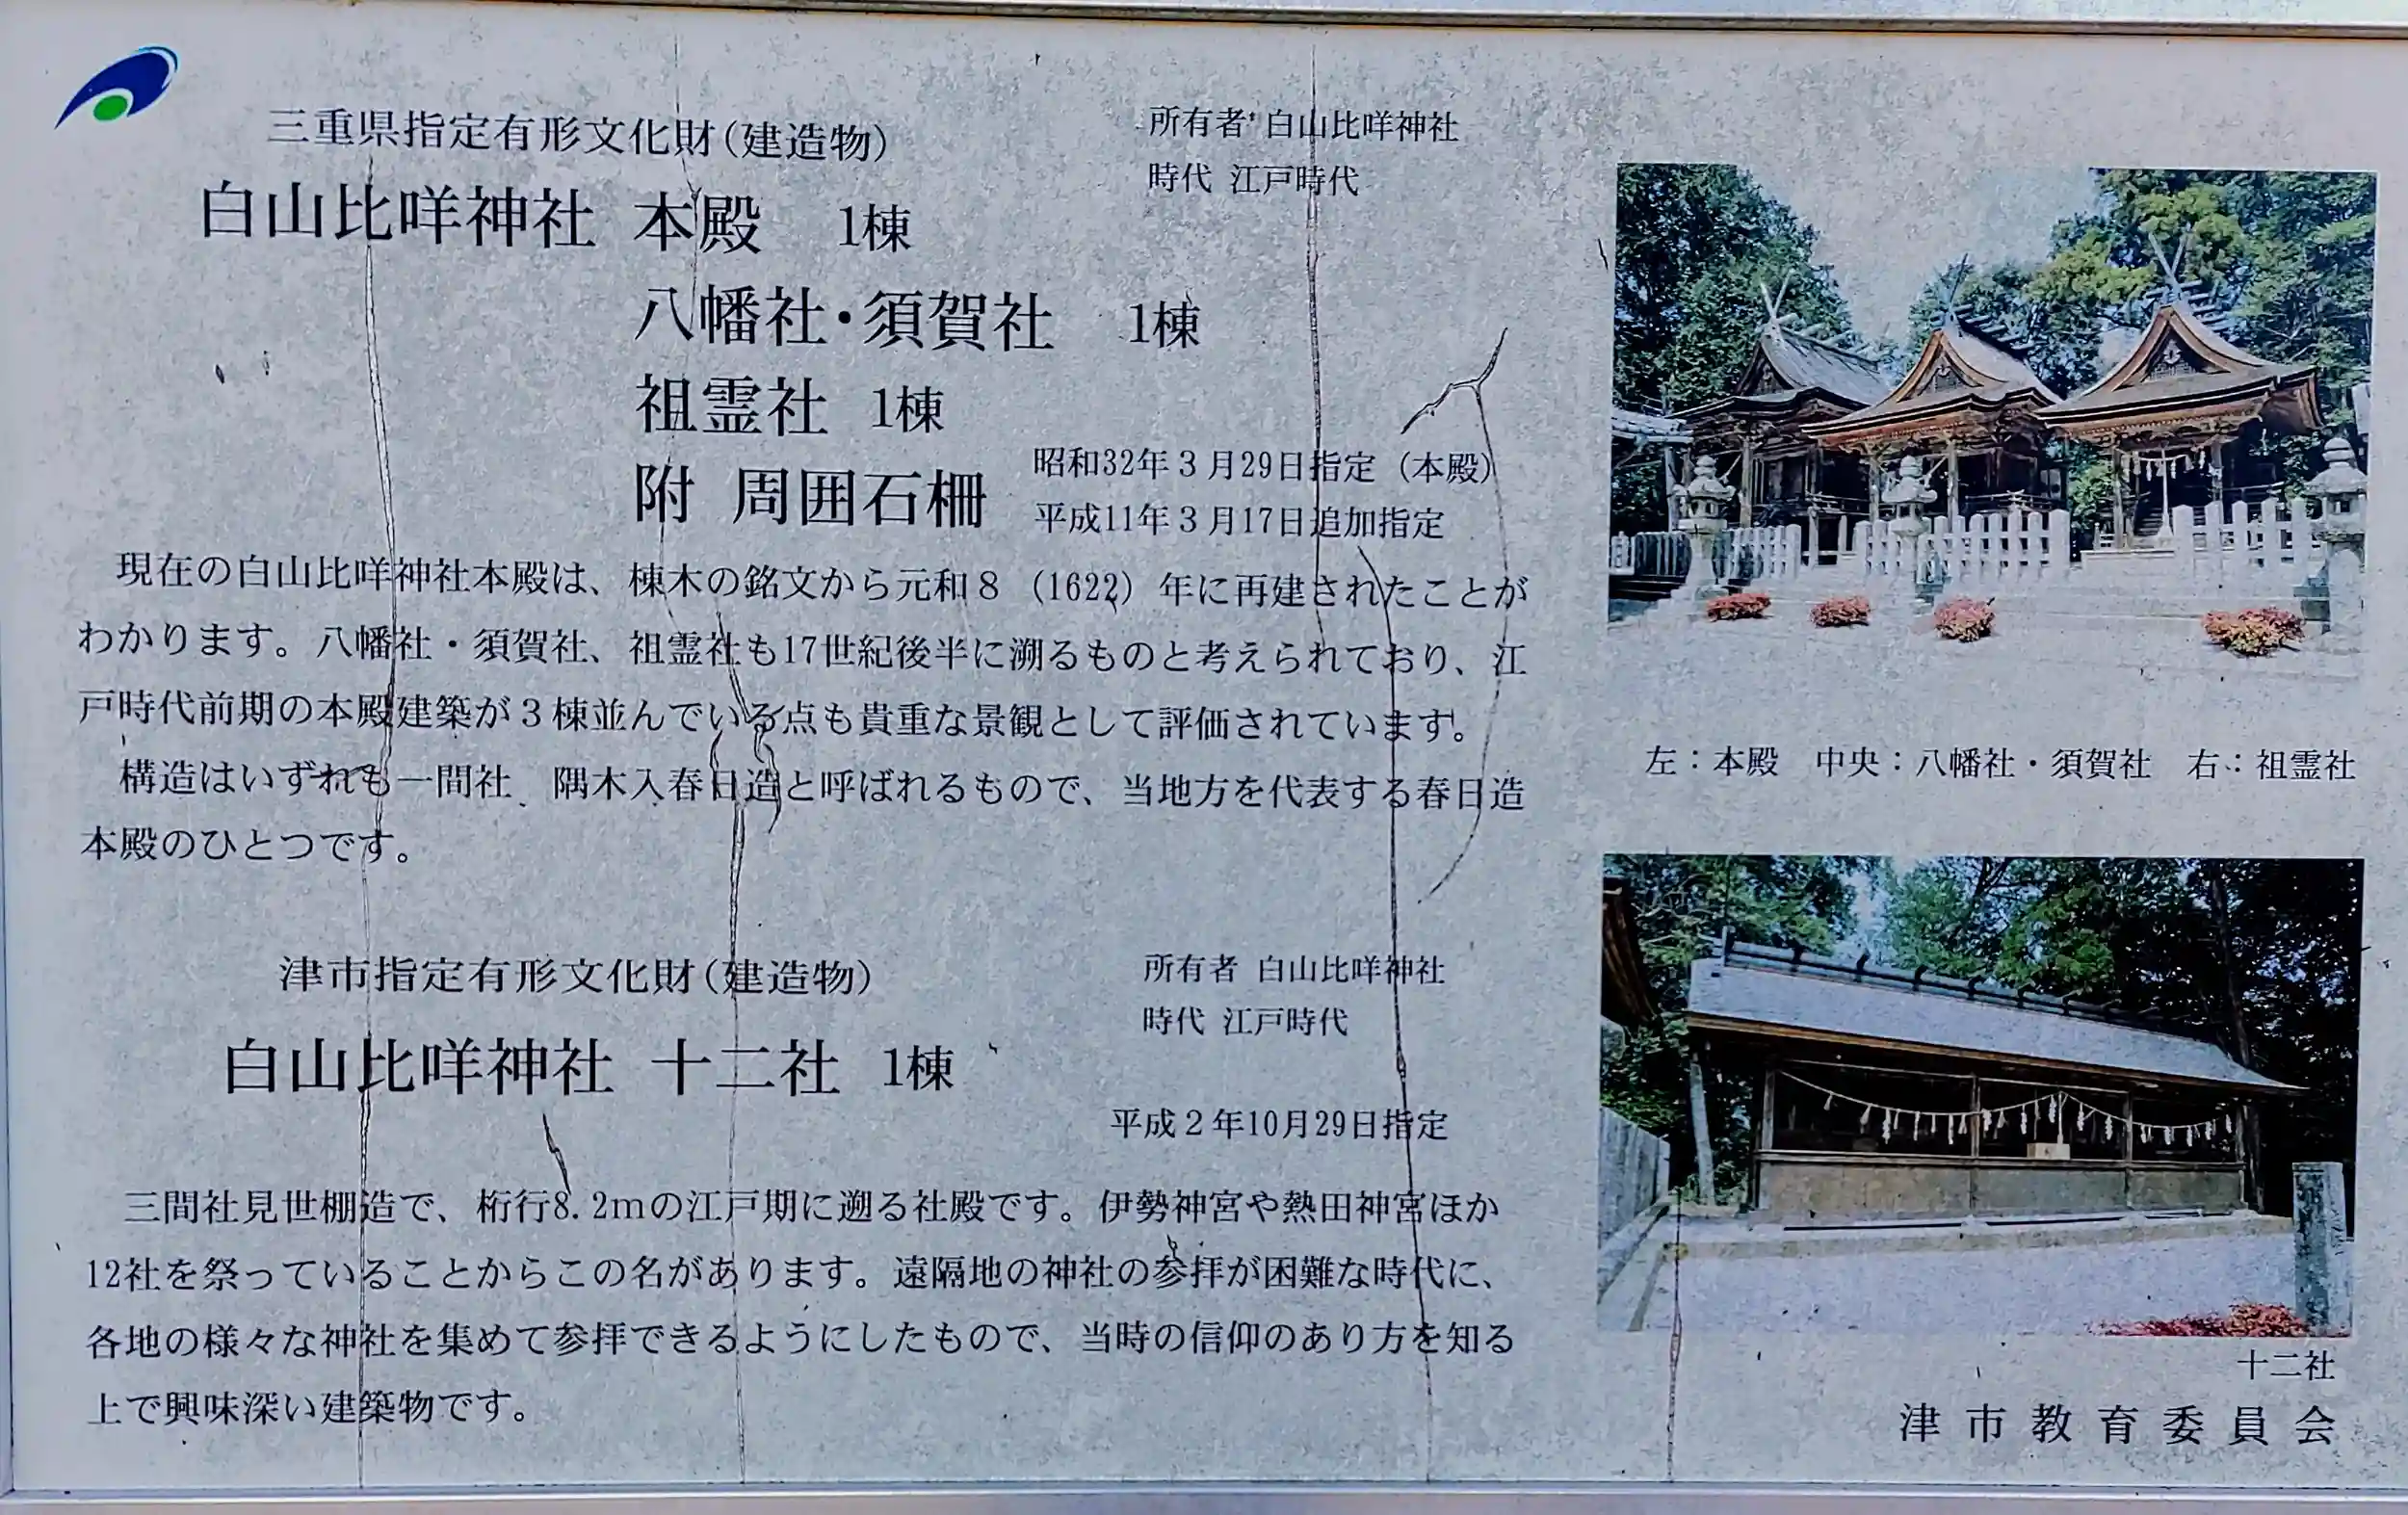 三重県指定有形文化財(建造物)
所有者 白山比咩神社
時代 江戸時代
白山比咩神社 本殿 1棟
八幡社・須賀社 1棟
祖霊社 1棟
附 周囲石柵
昭和32年3月29日指定（本殿）
平成11年3月17日追加指定
現在の白山比咩神社本殿は、棟木の銘文から元和8（1622）年に再建されたことが
わかります。八幡社・須賀社、祖霊社も17世紀後半に溯るものと考えられており、江
戸時代前期の本殿建築が3棟並んでいる点も貴重な景観として評価されています。
構造はいずれも一間社、隅木入春日造と呼ばれるもので、当地方を代表する春日造
本殿のひとつです。
左：本殿 中央：八幡社・須賀社 右：祖霊社
津市指定有形文化財(建造物)
所有者 白山比咩神社
時代 江戸時代
白山比咩神社 十二社 1棟
平成2年10月29日指定
三間社見世棚造で、桁行8.2mの江戸期に遡る社殿です。伊勢神宮や熱田神宮ほか
12社を祭っていることからこの名があります。遠隔地の神社の参拝が困難な時代に、
各地の様々な神社を集めて参拝できるようにしたもので、当時の信仰のあり方を知る
上で興味深い建築物です。
十二社
津市教育委員会